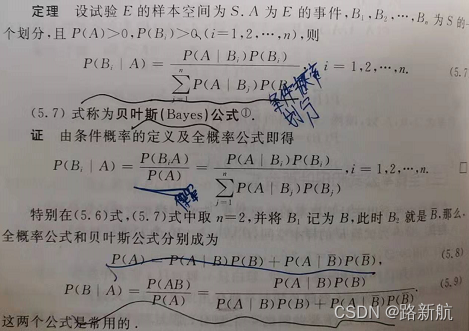 定理 设试验 E 的样本空间为 S. A 为 E 的事件, B₁, B₂, …, Bₙ 为 S 的一
个划分, 且 P(A)>0, P(Bᵢ)>0, (i=1,2,…,n), 则
P(Bᵢ | A) = P(A | Bᵢ)P(Bᵢ) / ∑ⱼ₌₁ⁿ P(A | Bⱼ)P(Bⱼ), i = 1,2,…,n. (5.7
条件概率
划分
(5.7) 式称为贝叶斯(Bayes)公式①.
证 由条件概率的定义及全概率公式即得
P(Bᵢ | A) = P(BᵢA) / P(A) = P(A | Bᵢ)P(Bᵢ) / ∑ⱼ₌₁ⁿ P(A | Bⱼ)P(Bⱼ), i = 1,2,…,n. □
特别在(5.6)式,(5.7)式中取 n=2, 并将 B₁ 记为 B, 此时 B₂ 就是 B̄, 那么,
全概率公式和贝叶斯公式分别成为
P(A) = P(A | B)P(B) + P(A | B̄)P(B̄), (5.8)
P(B | A) = P(AB) / P(A) = P(A | B)P(B) / P(A | B)P(B) + P(A | B̄)P(B̄). (5.9)
这两个公式是常用的.
CSDN @路新航